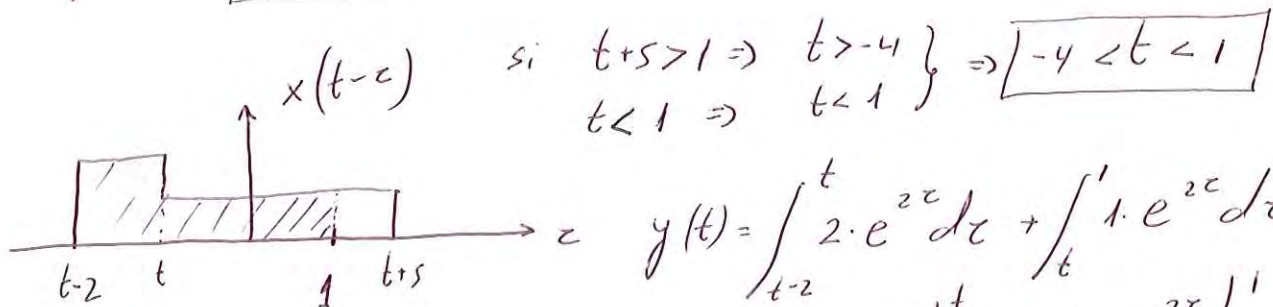 x(t-τ)
si t+5>1 ⇒ t>-4 } ⇒ -4 < t < 1
t<1 ⇒ t<1
τ
t-2 t 1 t+5
y(t) = ∫_{t-2}^{t} 2·e^{2τ} dτ + ∫_{t}^{1} 1·e^{2τ} dτ